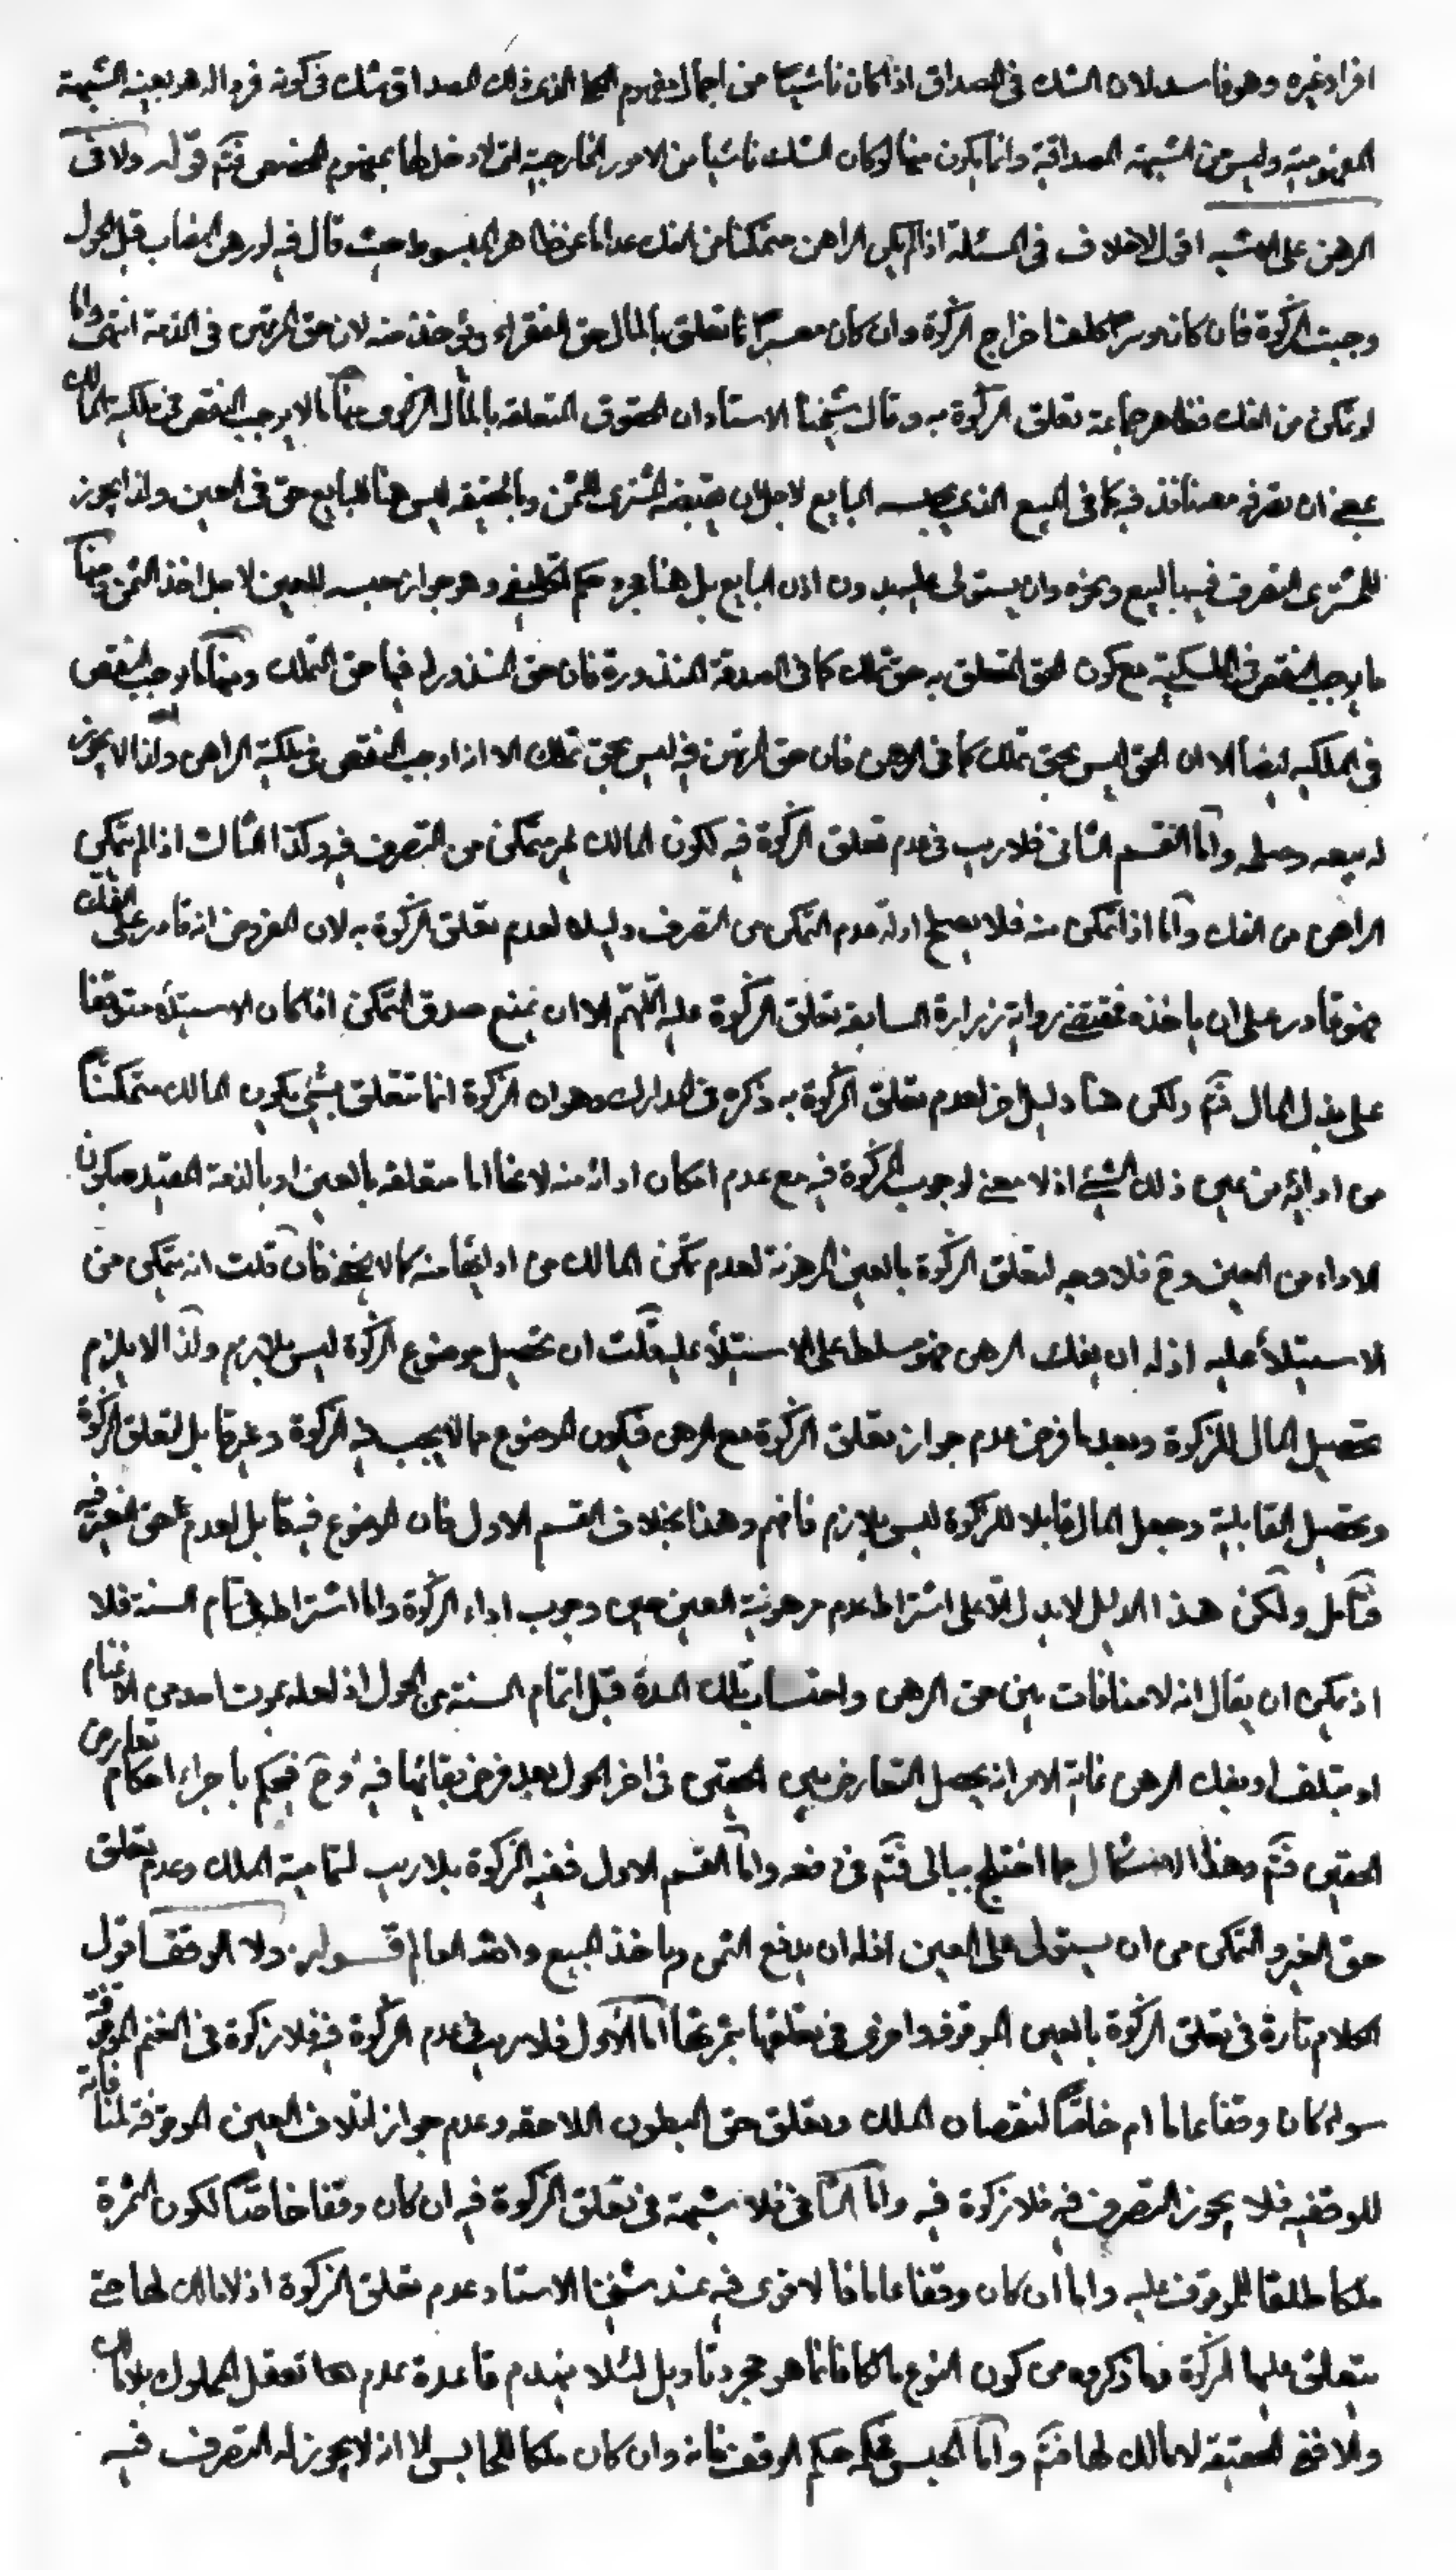 افراد غيره وهو فاسد لان الشك فى المصداق اذا كان ناشيا من اجمال مفهوم الذى ذلك المصداق شك فى كونه فردا له هو بعينه الشبهة
المفهومية وليس من الشبهة المصداقية وانما يكون منها لو كان الشك ناشيا من الامور الخارجية التى لا دخل لها بمفهوم المخصص فتم قوله ولا فى
الرهن على الاشبه اقول لا خلاف فى المسئلة اذا لم يكن الراهن متمكنا من الفك عدا ما عن ظاهر المبسوط حيث قال فيه لو رهن النصاب قبل الحول
وجبت الزكوة فان كان موسرا كلف اخراج الزكوة وان كان معسرا تعلق بالمال حق الفقراء ويؤخذ منه لان حق المرتهن فى الذمة انتهى واما
لو تمكن من الفك فظاهر جماعة تعلق الزكوة به وقال شيخنا الاستاد ان الحقوق المتعلقة بالمال الزكوى منها ما لا يوجب النقص فى ملكية المالك
بمعنى ان تصرفه معه نافذ فيه كما فى المبيع الذى يحبسه البايع لاجل ان يقبضه المشترى الثمن وبالحقيقة ليس هنا للبايع حق فى العين ولذا يجوز
للمشترى التصرف فيه بالبيع ونحوه وان يستولى عليه بدون اذن البايع بل هنا مجرد حكم تكليفى وهو جواز حبسه للعين لاجل اخذ الثمن ومنها
ما يوجب النقص فى الملكية مع كون الحق المتعلق به حق تملك كما فى الصدقة المنذورة فان حق المنذور له فيها حق التملك ومنها ما يوجب النقص
فى الملكية ايضا الا ان الحق ليس بحق تملك كما فى الرهن فان حق المرتهن فيه ليس بحق تملك الا انه اوجب النقص فى ملكية الراهن ولذا لا يجوز
له بيعه واما القسم الثانى فلا ريب فى عدم تعلق الزكوة فيه لكون المالك غير متمكن من التصرف فيه وكذا الثالث اذا لم يتمكن
الراهن من الفك واما اذا تمكن منه فلا يصلح ادلة عدم التمكن من التصرف دليلا لعدم تعلق الزكوة به لان المفروض انه قادر على الفك
فهو قادر على ان ياخذه فمقتضى رواية زرارة السابقة تعلق الزكوة عليه اللهم الا ان يمنع صدق التمكن اذا كان الاستيلاء متوقفا
على بذل المال فتم ولكن هنا دليل اخر لعدم تعلق الزكوة به ذكره فى المدارك وهو ان الزكوة انما تتعلق بشئ يكون المالك متمكنا
من ادائه من عين ذلك الشئ اذ لا معنى لوجوب الزكوة فيه مع عدم امكان ادائه منه لانها اما متعلقة بالعين او بالذمة المقيدة بكون
الاداء من العين وح فلا وجه لتعلق الزكوة بالعين المرهونة لعدم تمكن المالك من ادائها منه كما لا يخفى فان قلت انه يتمكن من
الاستيلاء عليه اذ له ان يفك الرهن فهو مسلط على الاستيلاء عليه قلت ان تحصيل موضوع الزكوة ليس بلازم ولذا لا يلزم
تحصيل المال للزكوة وبعد ما فرض عدم جواز تعلق الزكوة مع الرهن فيكون الموضوع مما لا يجب فيه الزكوة وغير قابل لتعلق الزكوة
وتحصيل القابلية وجعل المال قابلا للزكوة ليس بلازم فافهم وهذا بخلاف القسم الاول فان الموضوع فيه قابل لعدم حق الغير فيه
فتامل ولكن هذا الدليل لا يدل الا على اشتراط عدم مرهونية العين حين وجوب اداء الزكوة واما اشتراطه فى تمام السنة فلا
اذ يمكن ان يقال انه لا منافات بين حق الرهن واحتساب تلك المدة قبل اتمام السنة من الحول اذ لعله يموت احد من الاغنام
او يتلف او يفك الرهن غاية الامر انه يحصل التعارض بين الحقين فى اخر الحول بعد فرض بقائها فيه وح فيحكم باجراء احكام تعارض
الحقين فتم وهذا الاشكال مما اختلج ببالى فتم فى دفعه واما القسم الاول ففيه الزكوة بلا ريب لتمامية الملك وعدم تعلق
حق الغير والتمكن من ان يستولى على العين اذ له ان يدفع الثمن وياخذ المبيع والله العالم قوله ولا الوقف اقول
الكلام تارة فى تعلق الزكوة بالعين الموقوفة واخرى فى تعلقها بثمرتها اما الاول فلا ريب فى عدم الزكوة فيه فلا زكوة فى الغنم الموقوفة
سواء كان وقفا عاما ام خاصا لنقصان الملك وتعلق حق البطون اللاحقة وعدم جواز اتلاف العين الموقوفة لمنافاته
للوقفية فلا يجوز التصرف فيه فلا زكوة فيه واما الثانى فلا شبهة فى تعلق الزكوة فيه ان كان وقفا خاصا لكون الثمرة
ملكا طلقا للموقوف عليه واما ان كان وقفا عاما فالاقوى فيه عند شيخنا الاستاد عدم تعلق الزكوة اذ لا مالك لها حتى
يتعلق عليها الزكوة وما ذكروه من كون النوع مالكا فانما هو مجرد تاويل لئلا ينهدم قاعدة عدم تعقل المملوك بلا مالك
والا ففى الحقيقة لا مالك لها فتم واما الحبس فحكمه حكم الوقف فانه وان كان ملكا للحابس الا انه لا يجوز له التصرف فيه